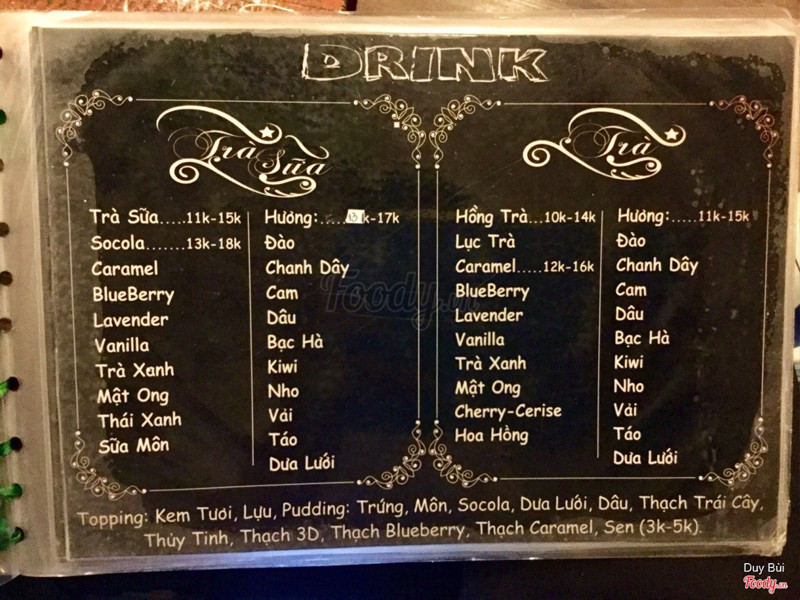 DRINK
Trà Sữa
Trà Sữa.....11k-15k
Socola.......13k-18k
Caramel
BlueBerry
Lavender
Vanilla
Trà Xanh
Mật Ong
Thái Xanh
Sữa Môn
Hương:.....13k-17k
Đào
Chanh Dây
Cam
Dâu
Bạc Hà
Kiwi
Nho
Vải
Táo
Dưa Lưới
Trà
Hồng Trà...10k-14k
Lục Trà
Caramel.....12k-16k
BlueBerry
Lavender
Vanilla
Trà Xanh
Mật Ong
Cherry-Cerise
Hoa Hồng
Hương:.....11k-15k
Đào
Chanh Dây
Cam
Dâu
Bạc Hà
Kiwi
Nho
Vải
Táo
Dưa Lưới
Topping: Kem Tươi, Lựu, Pudding: Trứng, Môn, Socola, Dưa Lưới, Dâu, Thạch Trái Cây,
Thủy Tinh, Thạch 3D, Thạch Blueberry, Thạch Caramel, Sen (3k-5k).
Foody.vn
Duy Bùi
Foody.vn